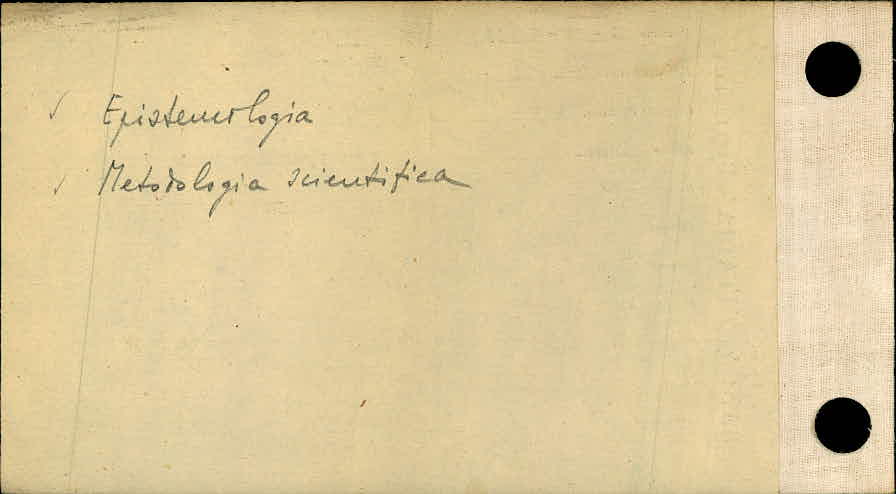 ✓ Epistemologia
✓ Metodologia scientifica